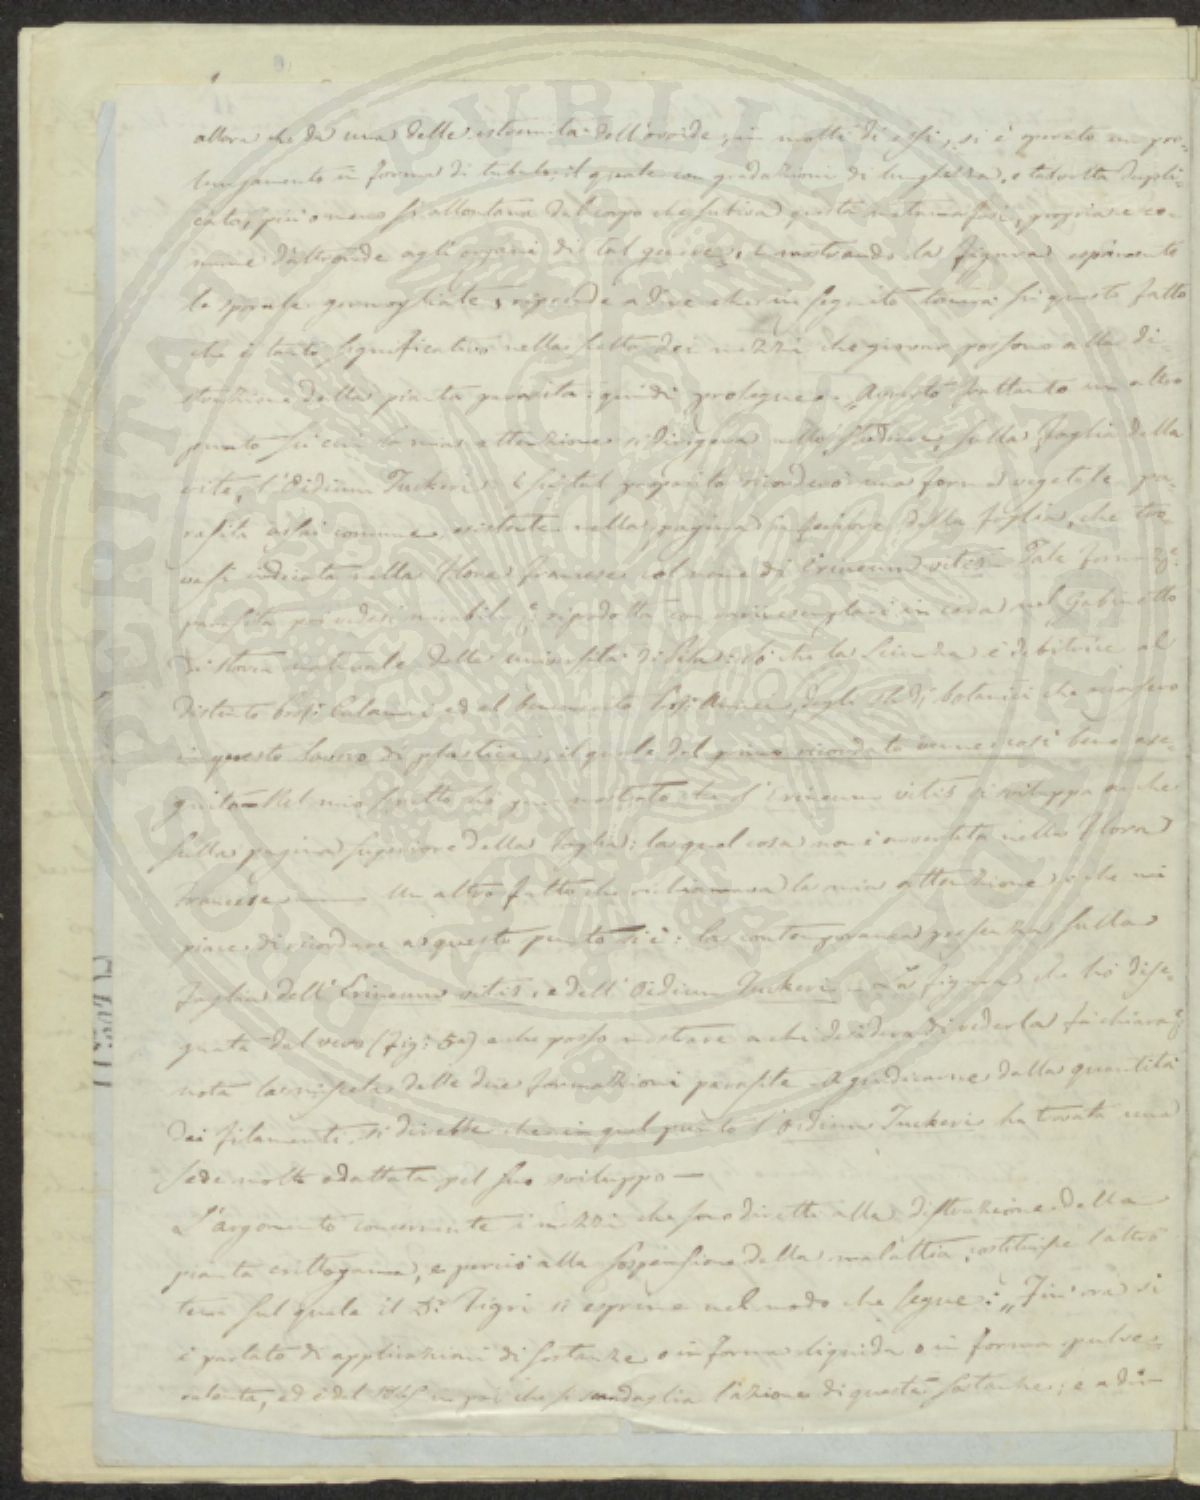 allora che da una delle estremità dell'ovoide, in molti di essi, si è operato un pro-
lungamento in forma di tubulo, il quale con gradazioni di lunghezza, e talvolta dupli-
cato, più o meno si allontana dal corpo che subiva questa metamorfosi, propria e co-
mune d'altronde agli organi di tal genere, e mostrando la figura
le sporule germogliate, riprende a dire che in seguito tornerà su questo fatto
che è tanto significativo nella scelta dei mezzi che giovar possono alla di-
struzione della pianta parasita: quindi prosegue „ frattanto un altro
punto su cui la mia attenzione si dirigeva nello studiare, sulla foglia della
vite, l'Oidium Tuckeri. E su tal proposito ricorderò una forma vegetale pa-
rasita assai comune, esistente nella pagina inferiore della foglia, che tro-
vasi indicata nella Flora francese col nome di Erineum vitis — Tale
parasita poi vedesi riprodotta con varii esemplari in cera nel Gabinetto
di storia naturale della università di Pisa: di che la Scienza è debitrice al
distinto Prof. Calamai ed al benemerito degli studj botanici che
in questo lavoro di plastica, il quale dal primo ricordato venne così bene ese-
guito — Nel mio scritto ho pur mostrato che l'Erineum vitis si sviluppa anche
sulla pagina superiore della foglia: la qual cosa non è avvertita nella Flora
francese — Un altro fatto che richiamava la mia attenzione, e che mi
piace di ricordare a questo punto si è: la contemporanea presenza sulla
foglia dell'Erineum vitis, e dell'Oidium Tuckeri — La figura che ho dise-
gnata dal vero (fig: 5ª) e che posso mostrare a chi desidera di vederla fà
nota la miscela delle due formazioni parasite. A giudicarne dalla quantità
dei filamenti, si direbbe che in quel punto l'Oidium Tuckeri ha trovato una
sede molto adattata pel suo sviluppo —
L'argomento concernente i mezzi che sono diretti alla distruzione della
pianta crittogama, e perciò alla sospensione della malattia, costituisce l'altro
tema sul quale il Dr. Tigri si esprime nel modo che segue: „ Fin'ora si
è parlato di applicazioni di sostanze o in forma liquida o in forma pulve-
rulenta, ed è dal in poi che si scandaglia l'azione di queste sostanze; e a di-